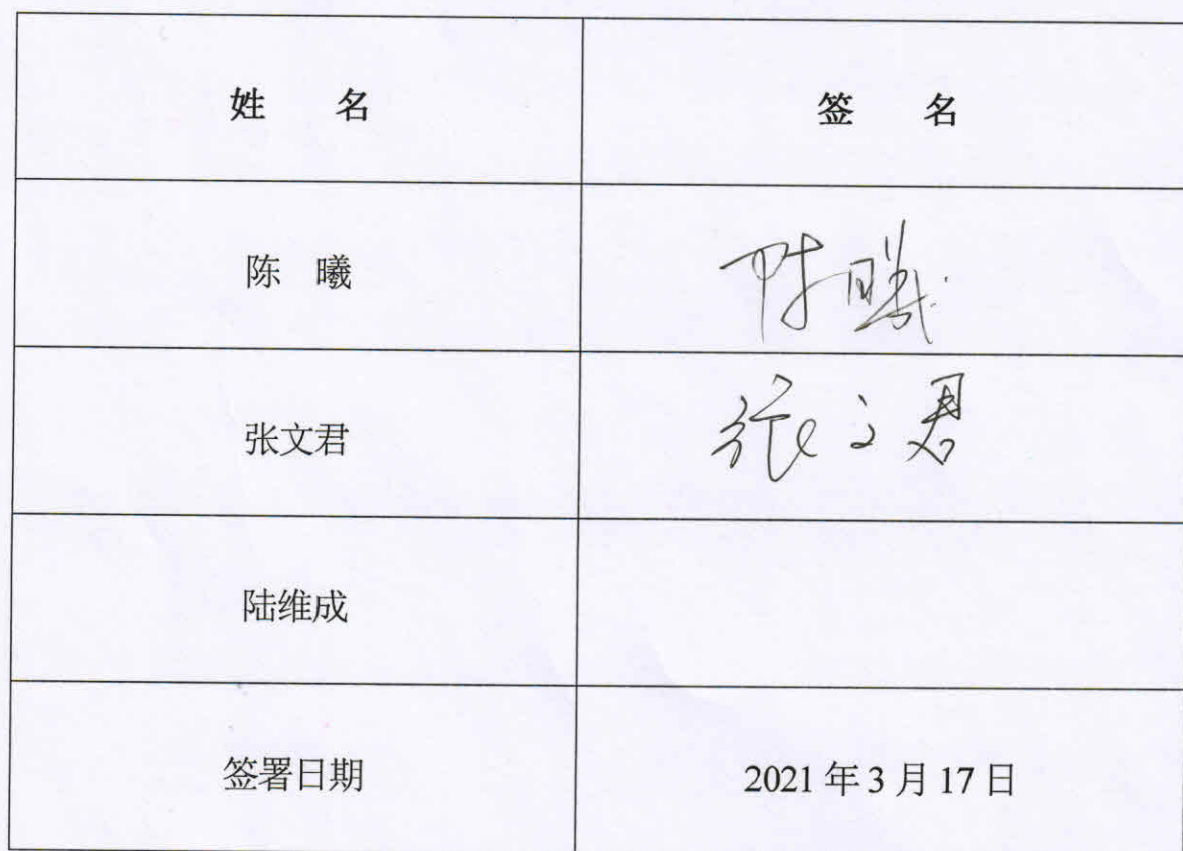 姓 名 签 名
陈 曦 陈曦
张文君 张文君
陆维成
签署日期 2021 年 3 月 17 日